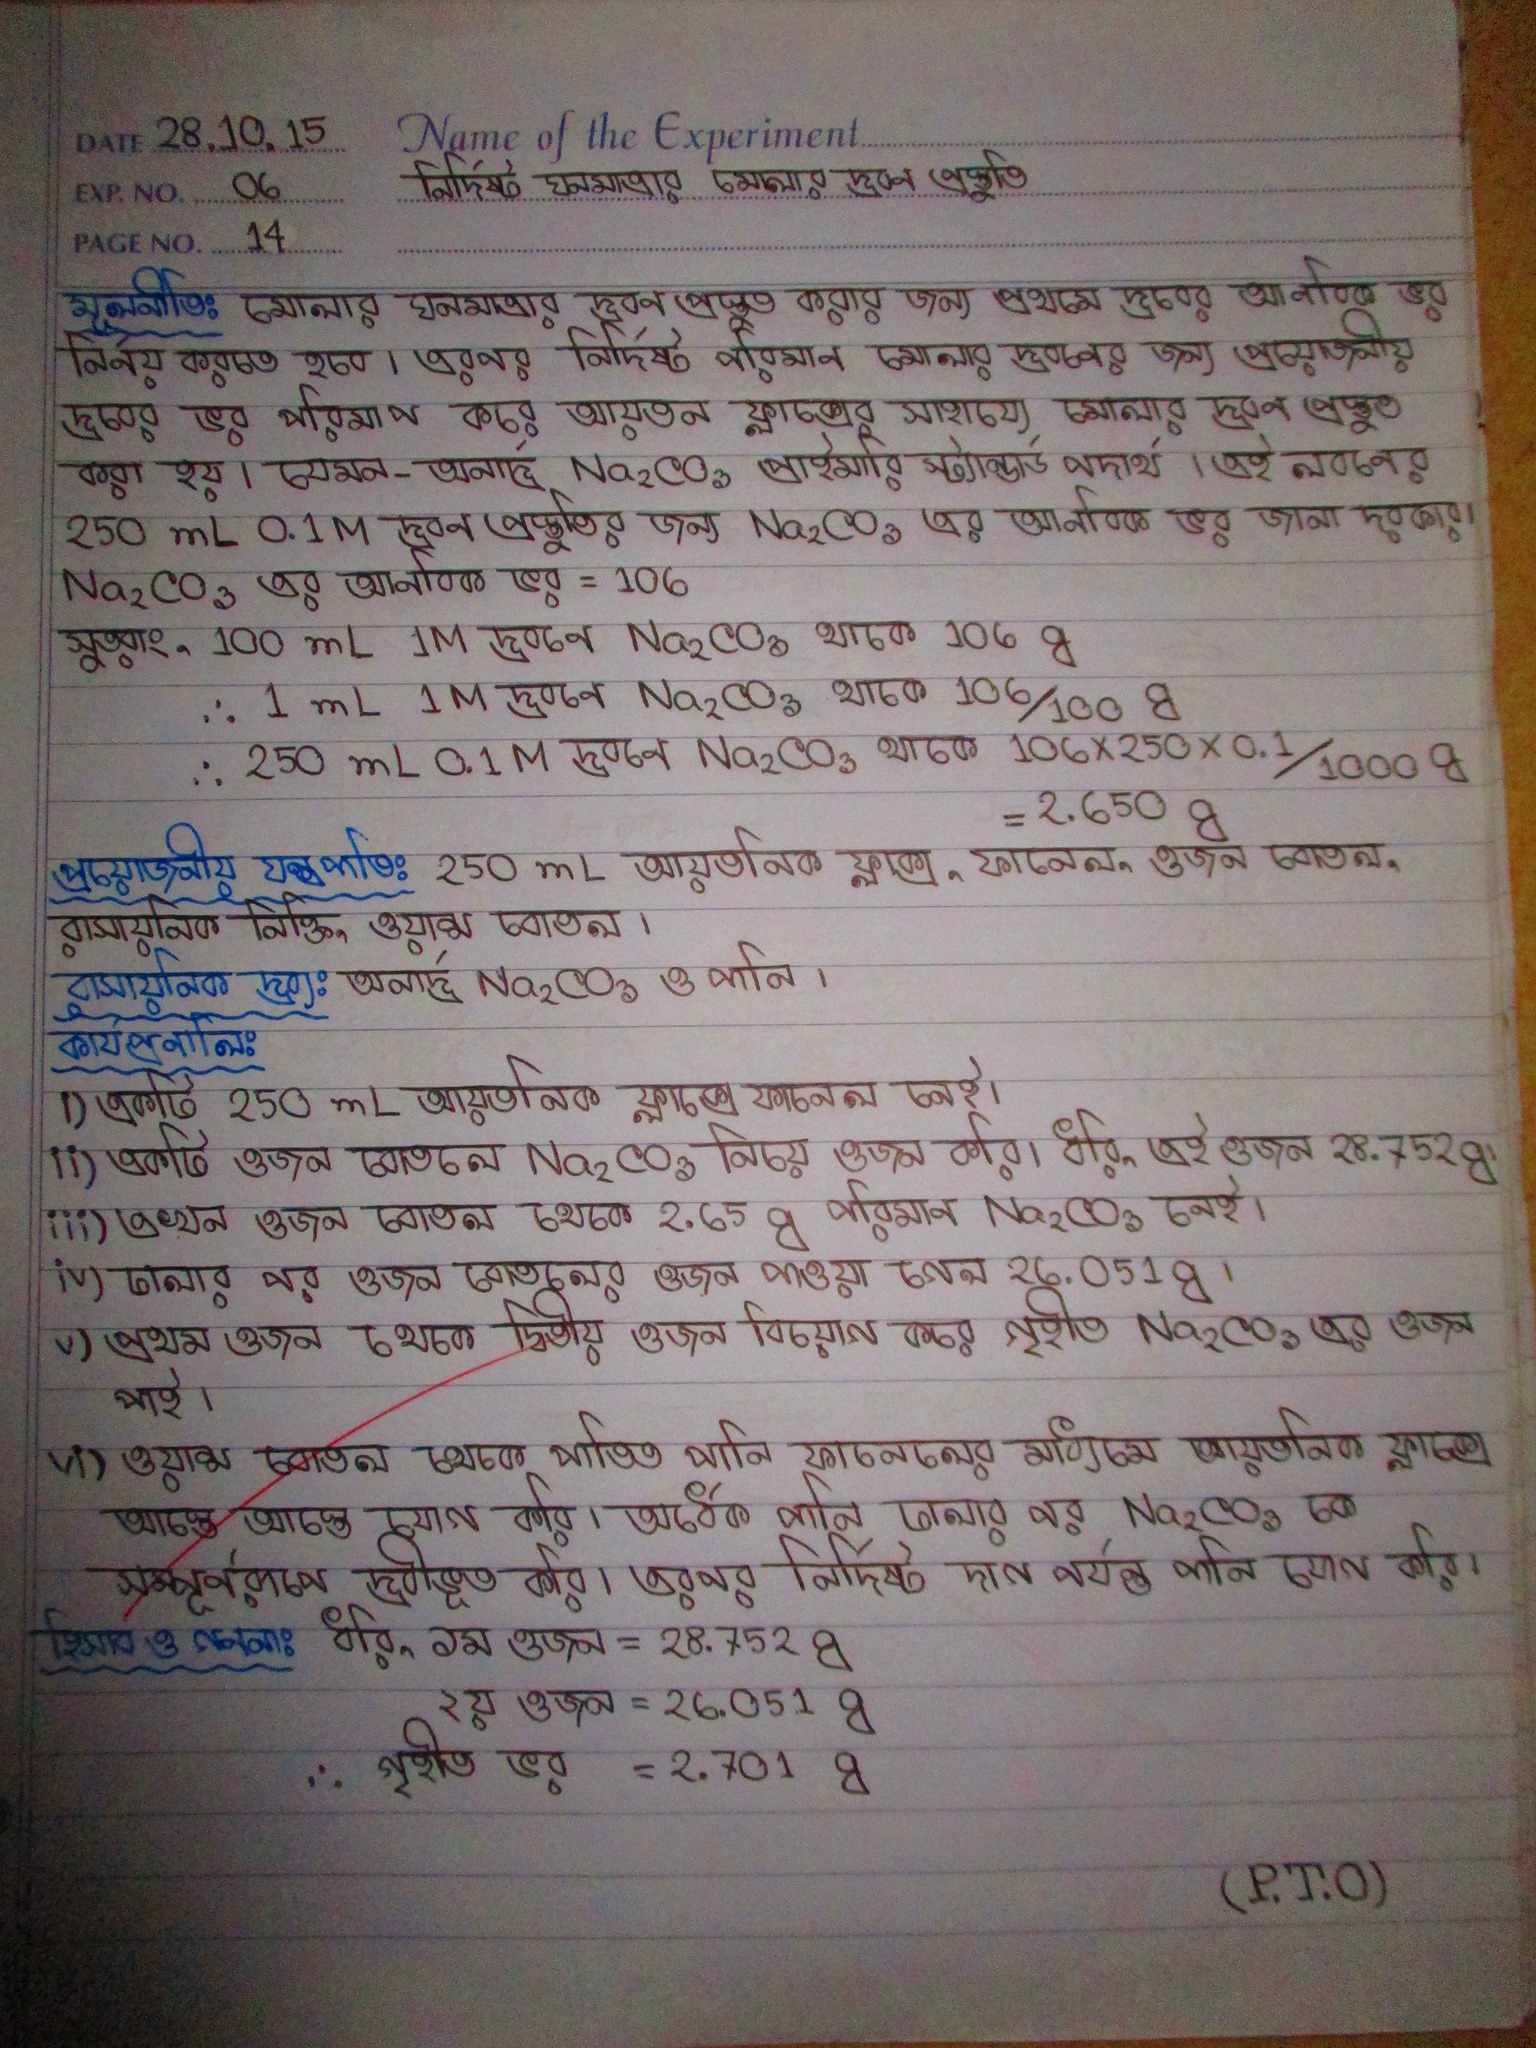 DATE 28.10.15 Name of the Experiment
EXP. NO. 06 নির্দিষ্ট ঘনমাত্রার মোলার দ্রবণ প্রস্তুতি
PAGE NO. 14
মূলনীতিঃ মোলার ঘনমাত্রার দ্রবণ প্রস্তুত করার জন্য প্রথমে দ্রবের আনবিক ভর
নির্নয় করতে হবে। এরপর নির্দিষ্ট পরিমান মোলার দ্রবণের জন্য প্রয়োজনীয়
দ্রবের ভর পরিমাপ করে আয়তন ফ্লাক্সের সাহায্যে মোলার দ্রবণ প্রস্তুত
করা হয়। যেমন- অনার্দ্র Na₂CO₃ প্রাইমারি স্ট্যান্ডার্ড পদার্থ। এই লবনের
250 mL 0.1M দ্রবণ প্রস্তুতির জন্য Na₂CO₃ এর আনবিক ভর জানা দরকার।
Na₂CO₃ এর আনবিক ভর = 106
সুতরাং, 100 mL 1M দ্রবণে Na₂CO₃ থাকে 106 g
∴ 1 mL 1M দ্রবণে Na₂CO₃ থাকে 106/100 g
∴ 250 mL 0.1M দ্রবণে Na₂CO₃ থাকে 106×250×0.1/1000 g
= 2.650 g
প্রয়োজনীয় যন্ত্রপাতিঃ 250 mL আয়তনিক ফ্লাক্স, ফানেল, ওজন বোতল,
রাসায়নিক নিক্তি, ওয়াশ বোতল।
রাসায়নিক দ্রব্যঃ অনার্দ্র Na₂CO₃ ও পানি।
কার্যপ্রনালিঃ
i) একটি 250 mL আয়তনিক ফ্লাক্সে ফানেল নেই।
ii) একটি ওজন বোতলে Na₂CO₃ নিয়ে ওজন করি। ধরি, এই ওজন 28.752g।
iii) এখন ওজন বোতল থেকে 2.65 g পরিমান Na₂CO₃ নেই।
iv) ঢালার পর ওজন বোতলের ওজন পাওয়া গেল 26.051g।
v) প্রথম ওজন থেকে দ্বিতীয় ওজন বিয়োগ করে গৃহীত Na₂CO₃ এর ওজন
পাই।
vi) ওয়াশ বোতল থেকে পাতিত পানি ফানেলের মাধ্যিমে আয়তনিক ফ্লাক্সে
আস্তে আস্তে যোগ করি। অর্ধেক পানি ঢালার পর Na₂CO₃ কে
সম্পূর্ণরূপে দ্রবীভূত করি। এরপর নির্দিষ্ট দাগ পর্যন্ত পানি যোগ করি।
হিসাব ও গননাঃ ধরি, ১ম ওজন = 28.752 g
২য় ওজন = 26.051 g
∴ গৃহীত ভর = 2.701 g
(P.T.O)